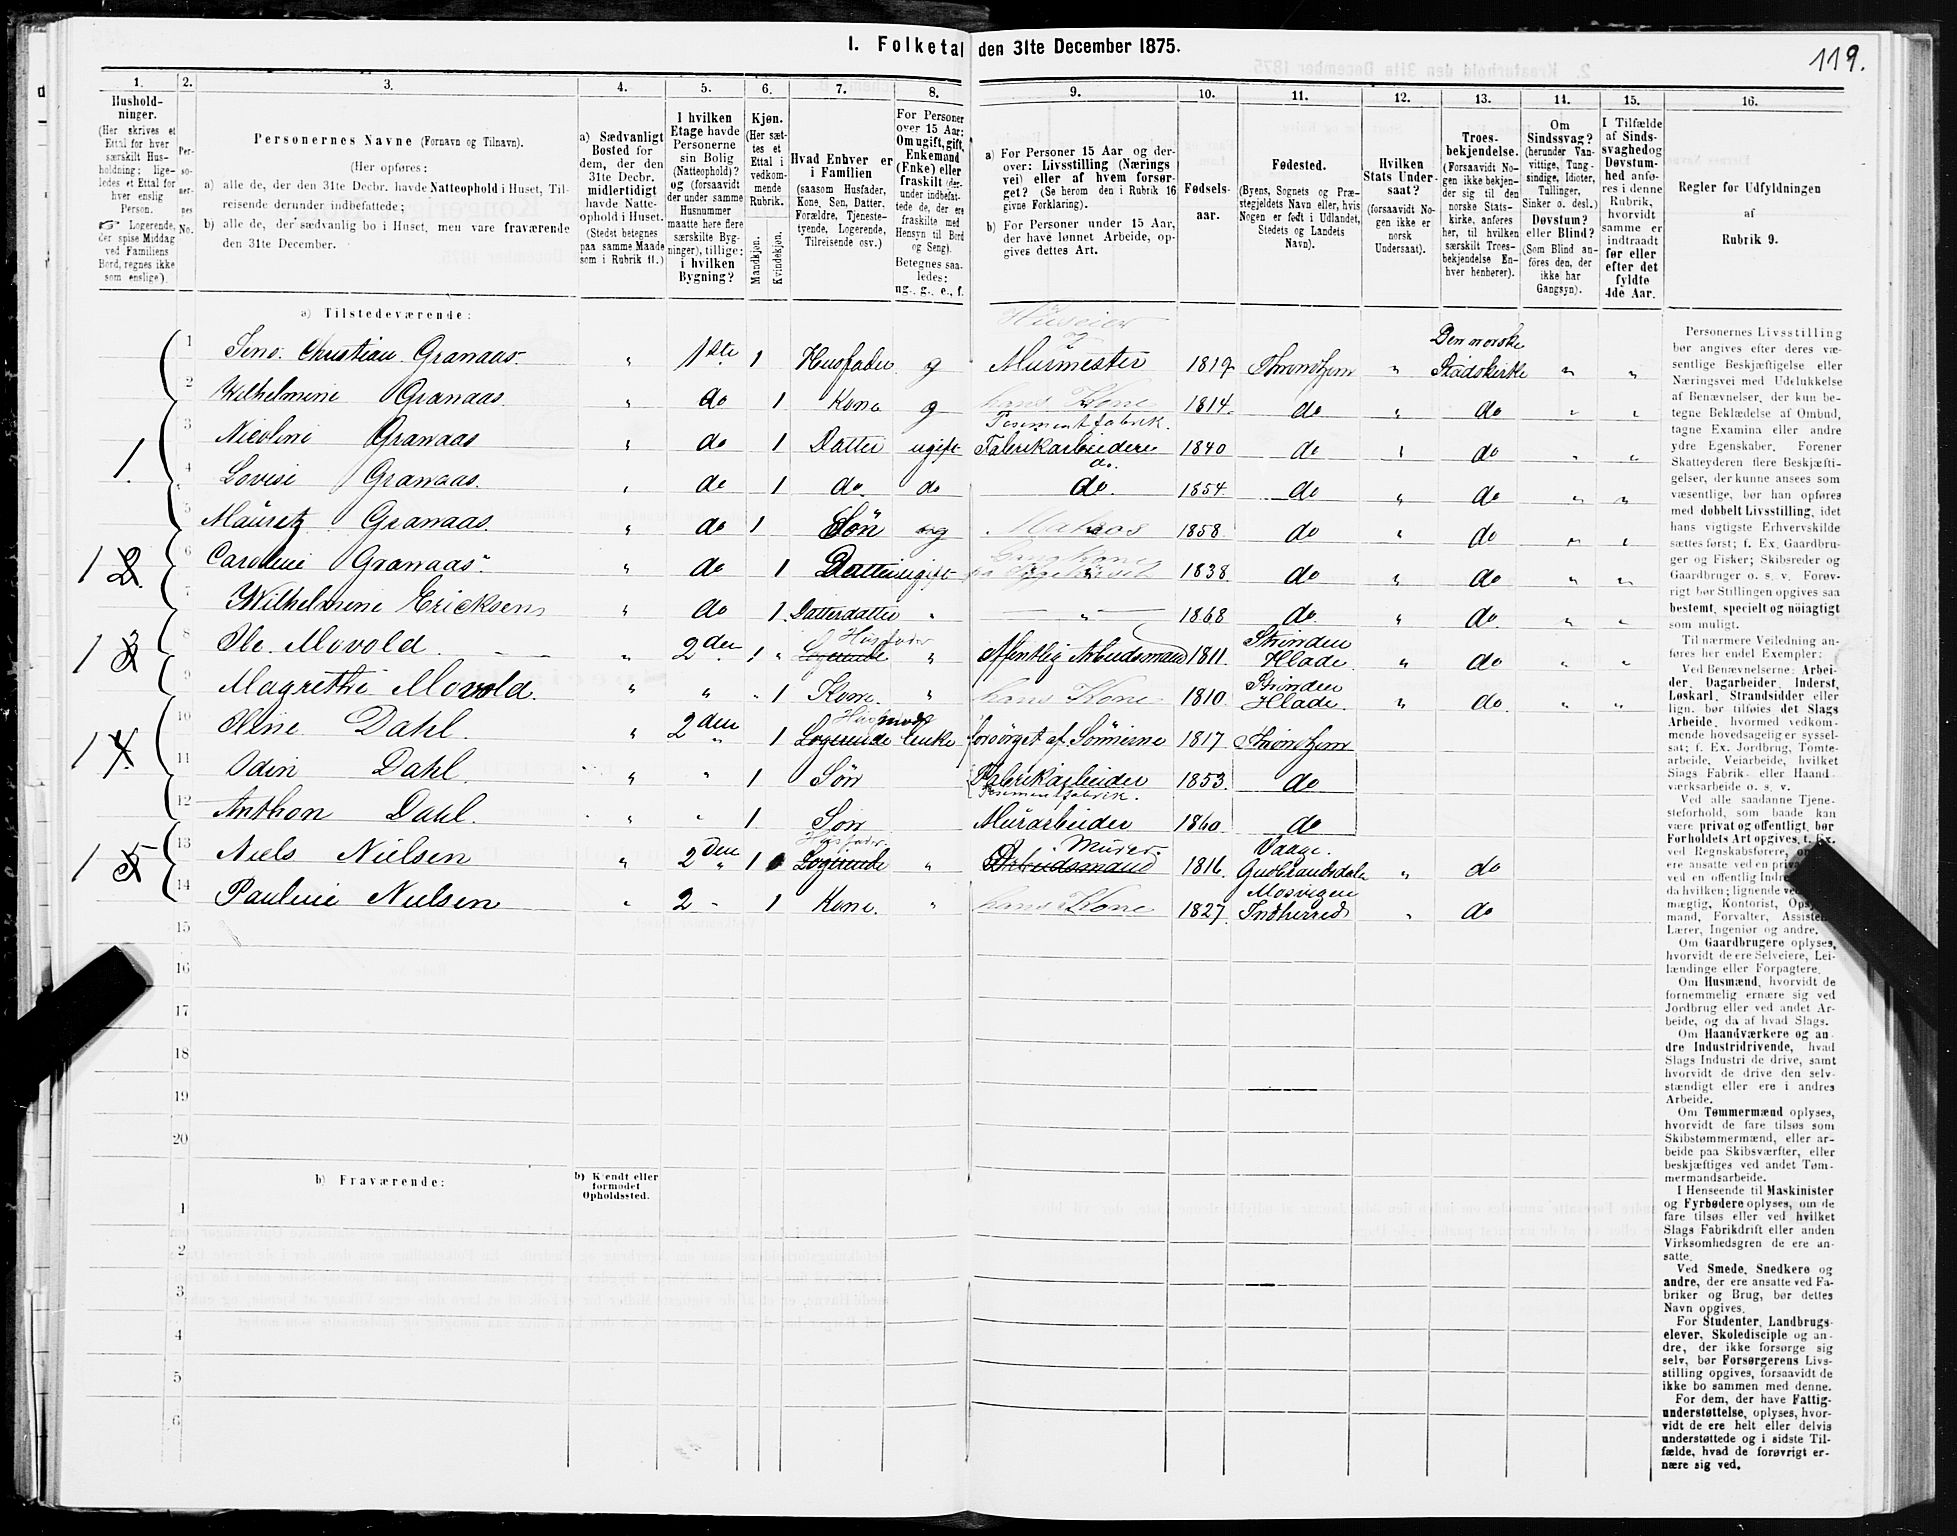 119.
I. Folketal den 31te December 1875.
1. 2. 3. 4. 5. 6. 7. 8. 9. 10. 11. 12. 13. 14. 15. 16.
Hushold-
ninger.
(Her skrives et
Ettal for hver
særskilt Hus-
holdning; lige-
ledes et Ettal for
hver enslig
Person.
☞ Logerende,
der spise Middag
ved Familiens
Bord, regnes ikke
som enslige).
Per-
so-
ner-
nes
No.
Personernes Navne (Fornavn og Tilnavn).
(Her opføres:
a) alle de, der den 31te Decbr. havde Natteophold i Huset, Til-
reisende derunder indbefattede;
b) alle de, der sædvanlig bo i Huset, men vare fraværende
den 31te December.
a) Sædvanligt
Bosted for
dem, der den
31te Decbr.
midlertidigt
havde Natte-
ophold i Huset.
(Stedet betegnes
paa samme Maade
som i Rubrik 11.)
I hvilken
Etage havde
Personerne
sin Bolig
(Natteophold)?
og (forsaavidt
der under samme
Husnummer
maatte høre flere
særskilte Byg-
ninger), tillige:
i hvilken
Bygning?
Kjøn.
(Her sæt-
tes et
Ettal i
vedkom-
mende
Rubrik.
Mandkjøn.
Kvindekjøn.
Hvad Enhver er
i Familien
(saasom Husfader,
Kone, Søn, Datter,
Forældre, Tjeneste-
tyende, Logerende,
Tilreisende osv.)
For Personer
over 15 Aar:
Om ugift, gift,
Enkemand
(Enke) eller
fraskilt (der-
under indbefat-
tede de, der ere
fraskilte med
Hensyn til Bord
og Seng).
Betegnes saa-
ledes:
ug., g., e., f.
a) For Personer 15 Aar og der-
over: Livsstilling (Nærings
vei) eller af hvem forsør-
get? (Se herom den i Rubrik 16
givne Forklaring).
b) For Personer under 15 Aar,
der have lønnet Arbeide, op-
gives dettes Art.
Fødsels-
aar.
Fødested.
(Byens, Sognets og Præ-
stegjeldets Navn eller, hvis
Nogen er født i Udlandet,
Stedets og Landets
Navn).
Hvilken
Stats Under-
saat?
(forsaavidt No-
gen ikke er
norsk
Undersaat).
Troes-
bekjendelse.
(Forsaavidt No-
gen ikke bekjen-
der sig til den
norske Stats-
kirke, anføres
her, til hvilken
særskilt Troes-
bekjendelse En-
hver henhører).
Om
Sindssvag?
(herunder Van-
vittige, Tung-
sindige, Idioter,
Tullinger,
Sinker o. desl.)
Døvstum?
eller Blind?
(Som Blind an-
føres den, der
ikke har
Gangsyn).
I Tilfælde
af Sinds-
svaghed og
Døvstum-
hed anfø-
res i denne
Rubrik,
hvorvidt
samme er
indtraadt
før eller
efter det
fyldte
4de Aar.
Regler for Udfyldningen
af
Rubrik 9.
a) Tilstedeværende:
Huseier
og
Den norske
1 Jens Christian Granaas " 1ste 1 Husfader g Murmester 1819 Thronhjem " Stadskirke " "
2 Wilhelmine Granaas " do 1 Kone g hans Kone 1814. do " do " "
Posementfabrik.
1. 3 Nicoline Granaas " do 1 Datter ugift Fabrikarbeider 1840 do " do " "
do.
4 Lovise Granaas. " do 1 do. do do. 1854. do " do " "
5 Mauretz Granaas. " do 1 Søn ug 1858. do " do " "
1 2. 6 Caroline Granaas " do 1 Datter ugift 1838. do " do " "
7 Wilhelmine Ericksen " do 1. Datterdatter " " 1868 do. " do. " "
Husfader
Strinden
1 3 8 Ole Movold. " 2den 1 " Logerende " offenklig Arbeidsmand 1811. Hlade. " do " "
Strinden
9 Magrethe Movold. " " 1 Kone. " hans Kone 1810. Hlade. " do. " "
Husmoder
1 4. 10 Oline Dahl. " 2den 1 Logerende Enke forsørget af Sønnerne 1817 Thronhjem
11 Odin Dahl. " " 1 Søn Fabrikarbeider 1853. do
Posementfabrik.
12 Anthon Dahl. " " 1. Søn Murarbeider 1860. do
Husfader. Murer. Vaage.
1 5 13 Niels Nielsen " 2den 1 Logerende " Arbeidsmand 1816. Gudbrandsdalen " do
Mosvigen
14 Pauline Nielsen " 2 " 1 Kone. " hans Kone 1827. Indherred " do
15
16
17
18
19
20
b) Fraværende:
b) Kjendt eller
formodet
Opholdssted.
1
2
3
4
5
6
Personernes Livsstilling
bør angives efter deres væ-
sentlige Beskjæftigelse eller
Næringsvei med Udelukkelse
af Benævnelser, der kun be-
tegne Beklædelse af Ombud,
tagne Examina eller andre
ydre Egenskaber. Forener
Skatteyderen flere Beskjæfti-
gelser, der kunne ansees som
væsentlige, bør han opføres
med dobbelt Livsstilling, idet
hans vigtigste Erhvervskilde
sættes først; f. Ex. Gaardbru-
ger og Fisker; Skibsreder og
Gaardbruger o. s. v. Forøv-
rigt bør Stillingen opgives saa
bestemt, specielt og nøiagtigt
som muligt.
Til nærmere Veiledning an-
føres her endel Exempler:
Ved Benævnelserne: Arbei-
der, Dagarbeider, Inderst,
Løskarl, Strandsidder eller
lign. bør tilføies det Slags
Arbeide, hvormed vedkom-
mende hovedsagelig er syssel-
sat; f. Ex. Jordbrug, Tomte-
arbeide, Veiarbeide, hvilket
Slags Fabrik- eller Haand-
værksarbeide o. s. v.
Ved alle saadanne Tjene-
steforhold, som baade kan
være privat og offentligt, bør
Forholdets Art opgives, f. Ex.
ved Regnskabsførere, om de
ere ansatte ved en privat
ved en offentlig Indretning
da hvilken; lignende ved
mægtig, Kontorist, Opsyns-
mand, Forvalter, Assistent,
Lærer, Ingeniør og andre.
Om Gaardbrugere oplyses,
hvorvidt de ere Selveiere, Lei-
lændinge eller Forpagtere.
Om Husmænd, hvorvidt de
fornemmelig ernære sig ved
Jordbrug eller ved andet Ar-
beide, og da af hvad Slags.
Om Haandværkere og an-
dre Industridrivende, hvad
Slags Industri de drive, samt
hvorvidt de drive den selv-
stændigt eller ere i andres
Arbeide.
Om Tømmermænd oplyses,
hvorvidt de fare tilsøs som
Skibstømmermænd, eller ar-
beide paa Skibsværfter, eller
beskjæftiges ved andet Tøm-
mermandsarbeide.
I Henseende til Maskinister
og Fyrbødere oplyses, om de
fare tilsøs eller ved hvilket
Slags Fabrikdrift eller anden
Virksomhedsgren de ere an-
satte.
Ved Smede, Snedkere og
andre, der ere ansatte ved Fa-
briker og Brug, bør dettes
Navn opgives.
For Studenter, Landbrugs-
elever, Skoledisciple og an-
dre, der ikke forsørge sig
selv, bør Forsørgerens Livs-
stilling opgives, forsaavidt de
ikke bo sammen med denne.
For dem, der have Fattig-
understøttelse, oplyses, hvor-
vidt de ere helt eller delvis
understøttede og i sidste Til-
fælde, hvad de forøvrigt er-
nære sig ved.